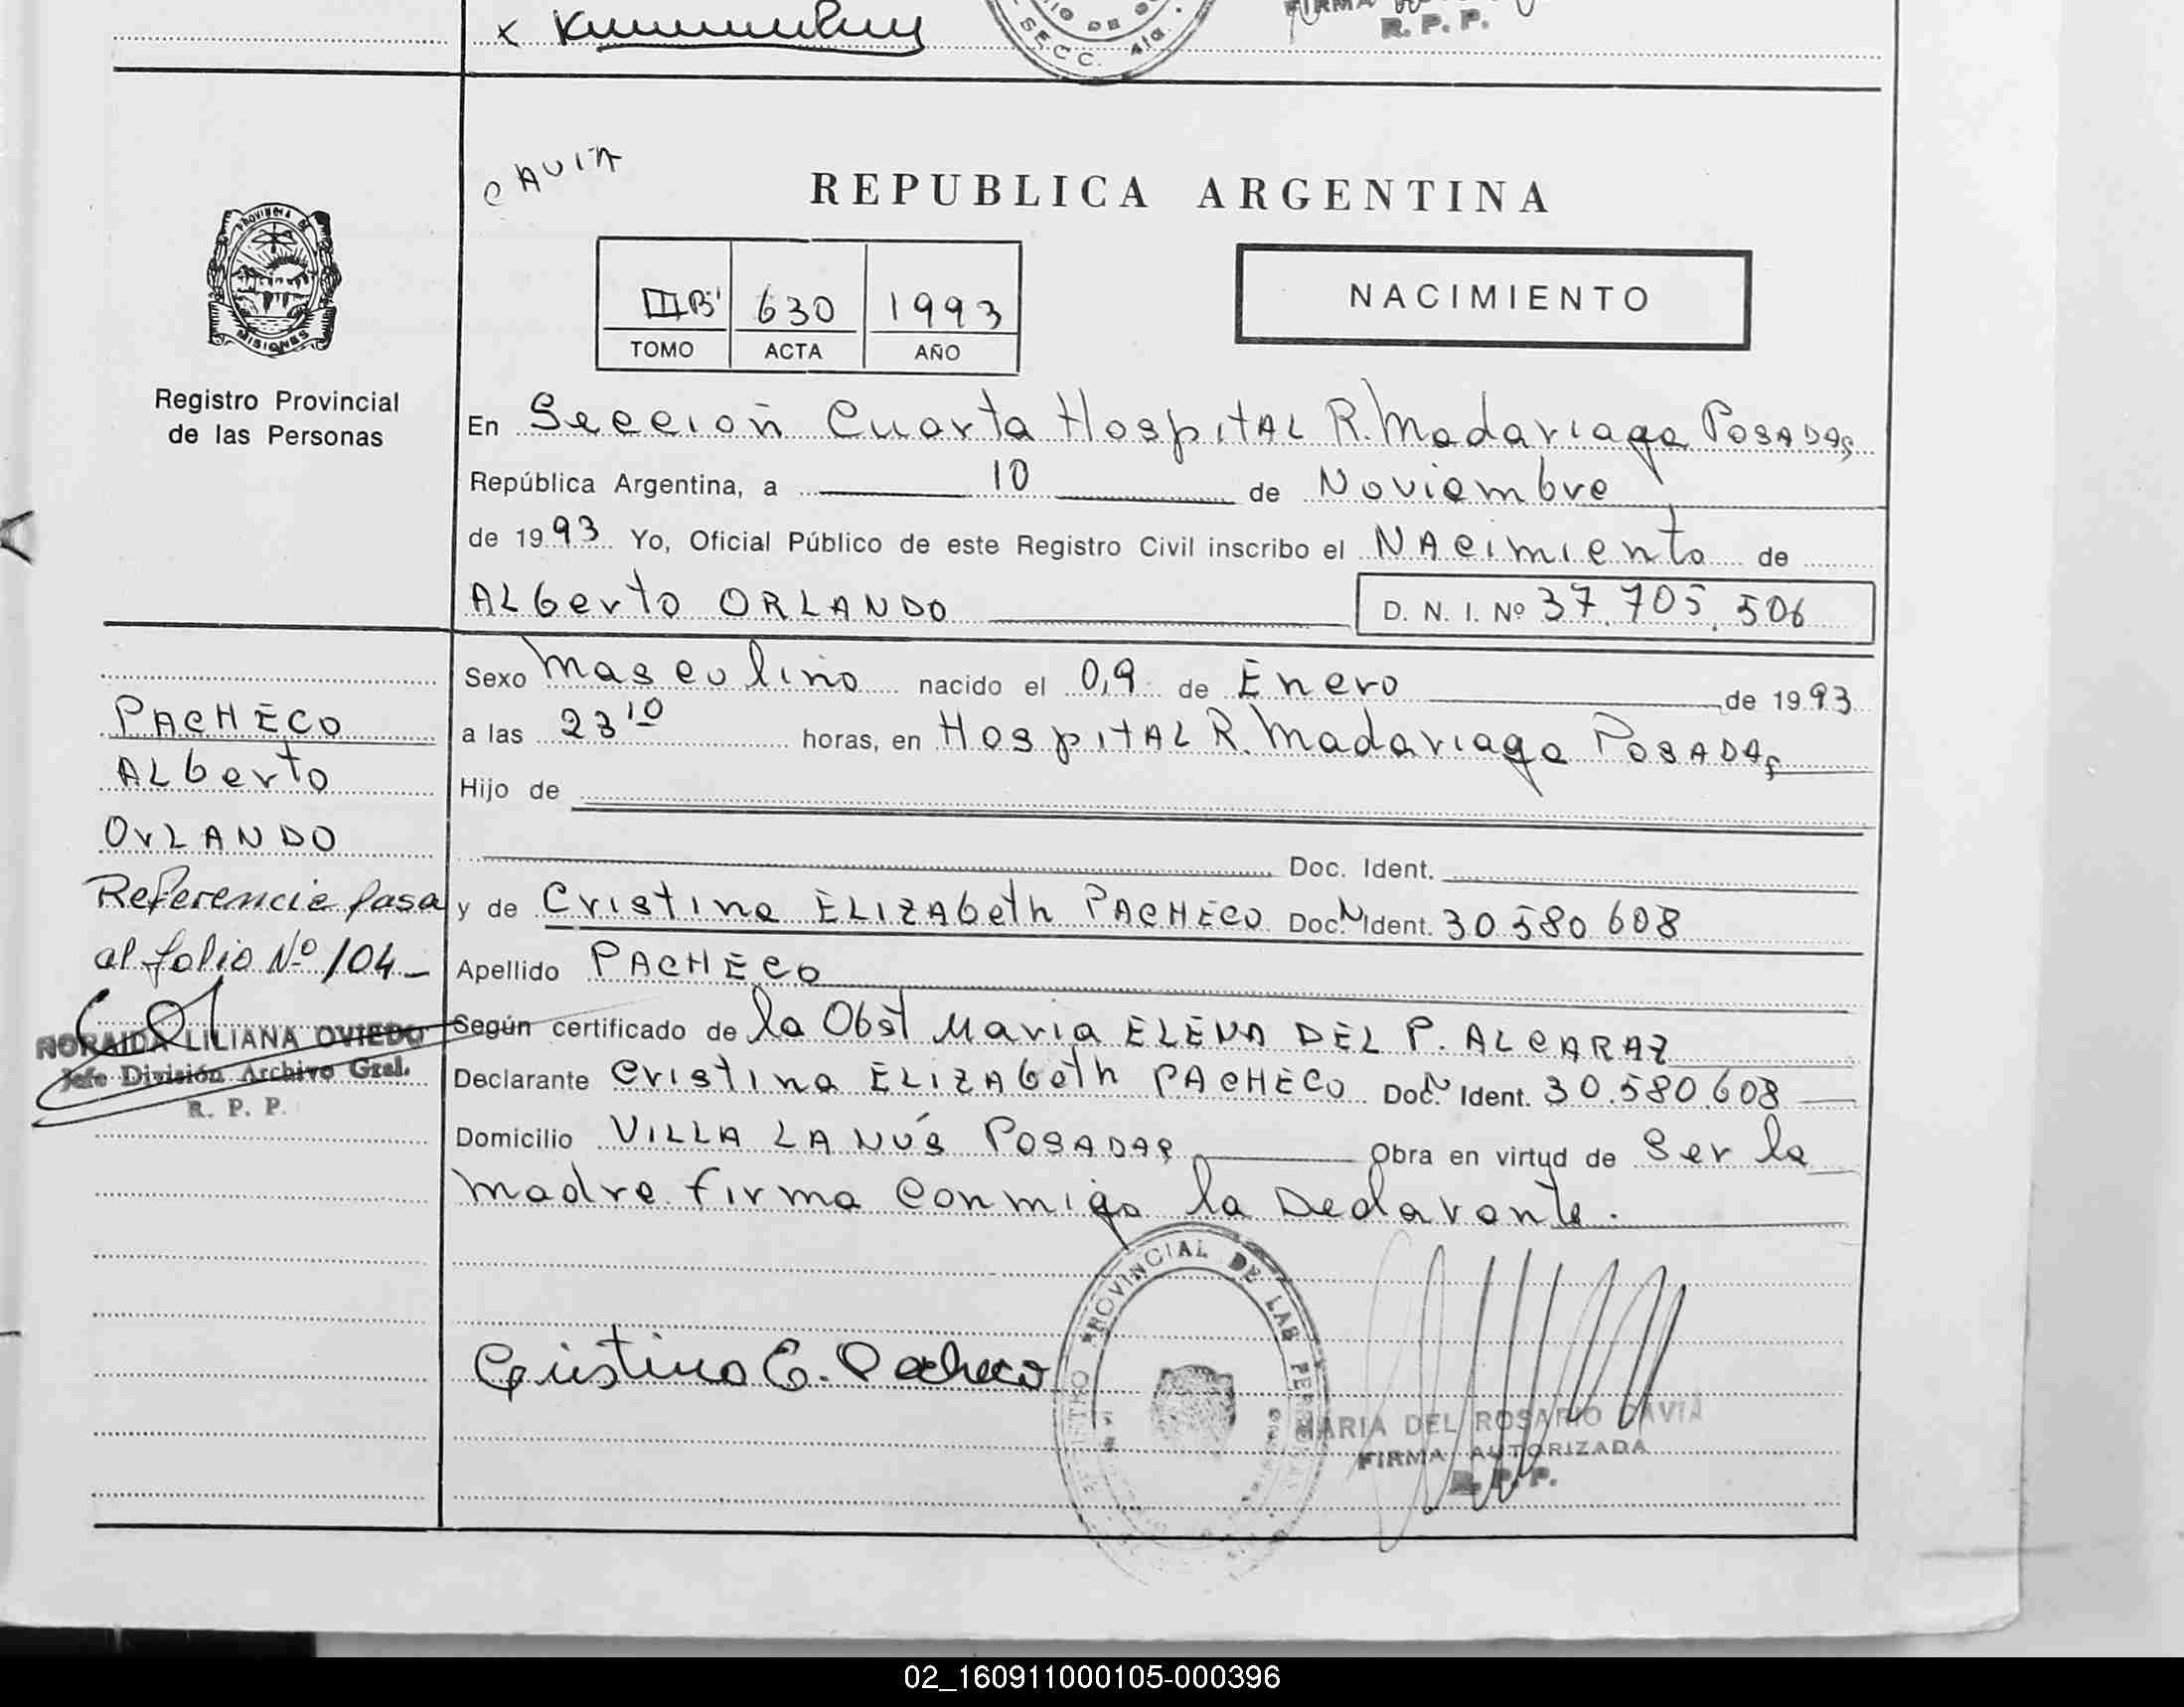 SECC. 4ta.
FIRMA
R. P. P.
CAVIA
REPUBLICA ARGENTINA
PROVINCIA DE
MISIONES
III B' 630 1993
TOMO ACTA AÑO
NACIMIENTO
Registro Provincial
de las Personas
En Sección Cuarta Hospital R. Madariaga Posadas
República Argentina, a 10 de Noviembre
de 1993 Yo, Oficial Público de este Registro Civil inscribo el Nacimiento de
Alberto ORLANDO D. N. I. Nº 37.705.506
Sexo Masculino nacido el 09 de Enero de 1993
a las 23 10 horas, en Hospital R. Madariaga Posadas
Hijo de
Doc. Ident.
y de Cristina Elizabeth PACHECO Doc. N Ident. 30 580 608
Apellido PACHECO
Según certificado de la Obst Maria ELENA DEL P. ALCARAZ
Declarante Cristina Elizabeth PACHECO Doc. N Ident. 30.580.608
Domicilio VILLA LANÚS POSADAS Obra en virtud de Ser la
madre firma conmigo la Declarante.
PACHECO
Alberto
OrLANDO
Referencia pasa
al folio Nº 104
NORAIDA LILIANA OVIEDO
Jefe División Archivo Gral.
R. P. P.
Cristina E. Pacheco
PROVINCIAL DE LAS PERSONAS
MARIA DEL ROSARIO CAVIA
FIRMA AUTORIZADA
R. P. P.
02_160911000105-000396